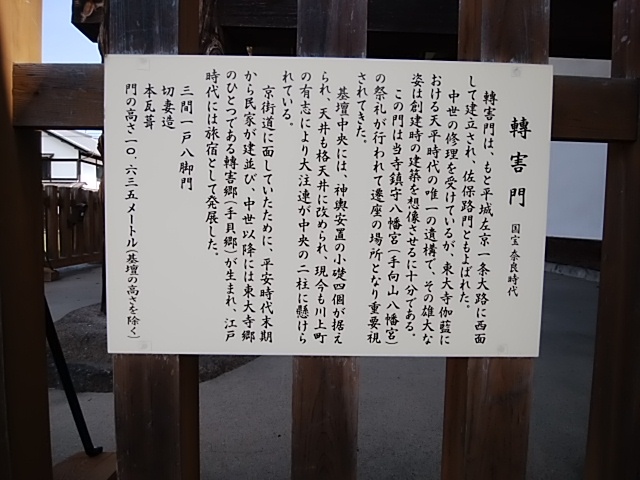 轉害門 国宝・奈良時代
轉害門は、もと平城左京一条大路に西面
して建立され、佐保路門ともよばれた。
中世の修理を受けているが、東大寺伽藍に
おける天平時代の唯一の遺構で、その雄大な
姿は創建時の建築を想像させるに十分である。
この門は当寺鎮守八幡宮(手向山八幡宮)
の祭礼が行われて遷座の場所となり重要視
されてきた。
基壇中央には、神輿安置の小礎四個が据え
られ、天井も格天井に改められ、現今も川上町
の有志により大注連が中央の二柱に懸けら
れている。
京街道に面していたために、平安時代末期
から民家が建並び、中世以降には東大寺郷
のひとつである轉害郷(手貝郷)が生まれ、江戸
時代には旅宿として発展した。
三間一戸八脚門
切妻造
本瓦葺
門の高さ一〇.六三五メートル(基壇の高さを除く)